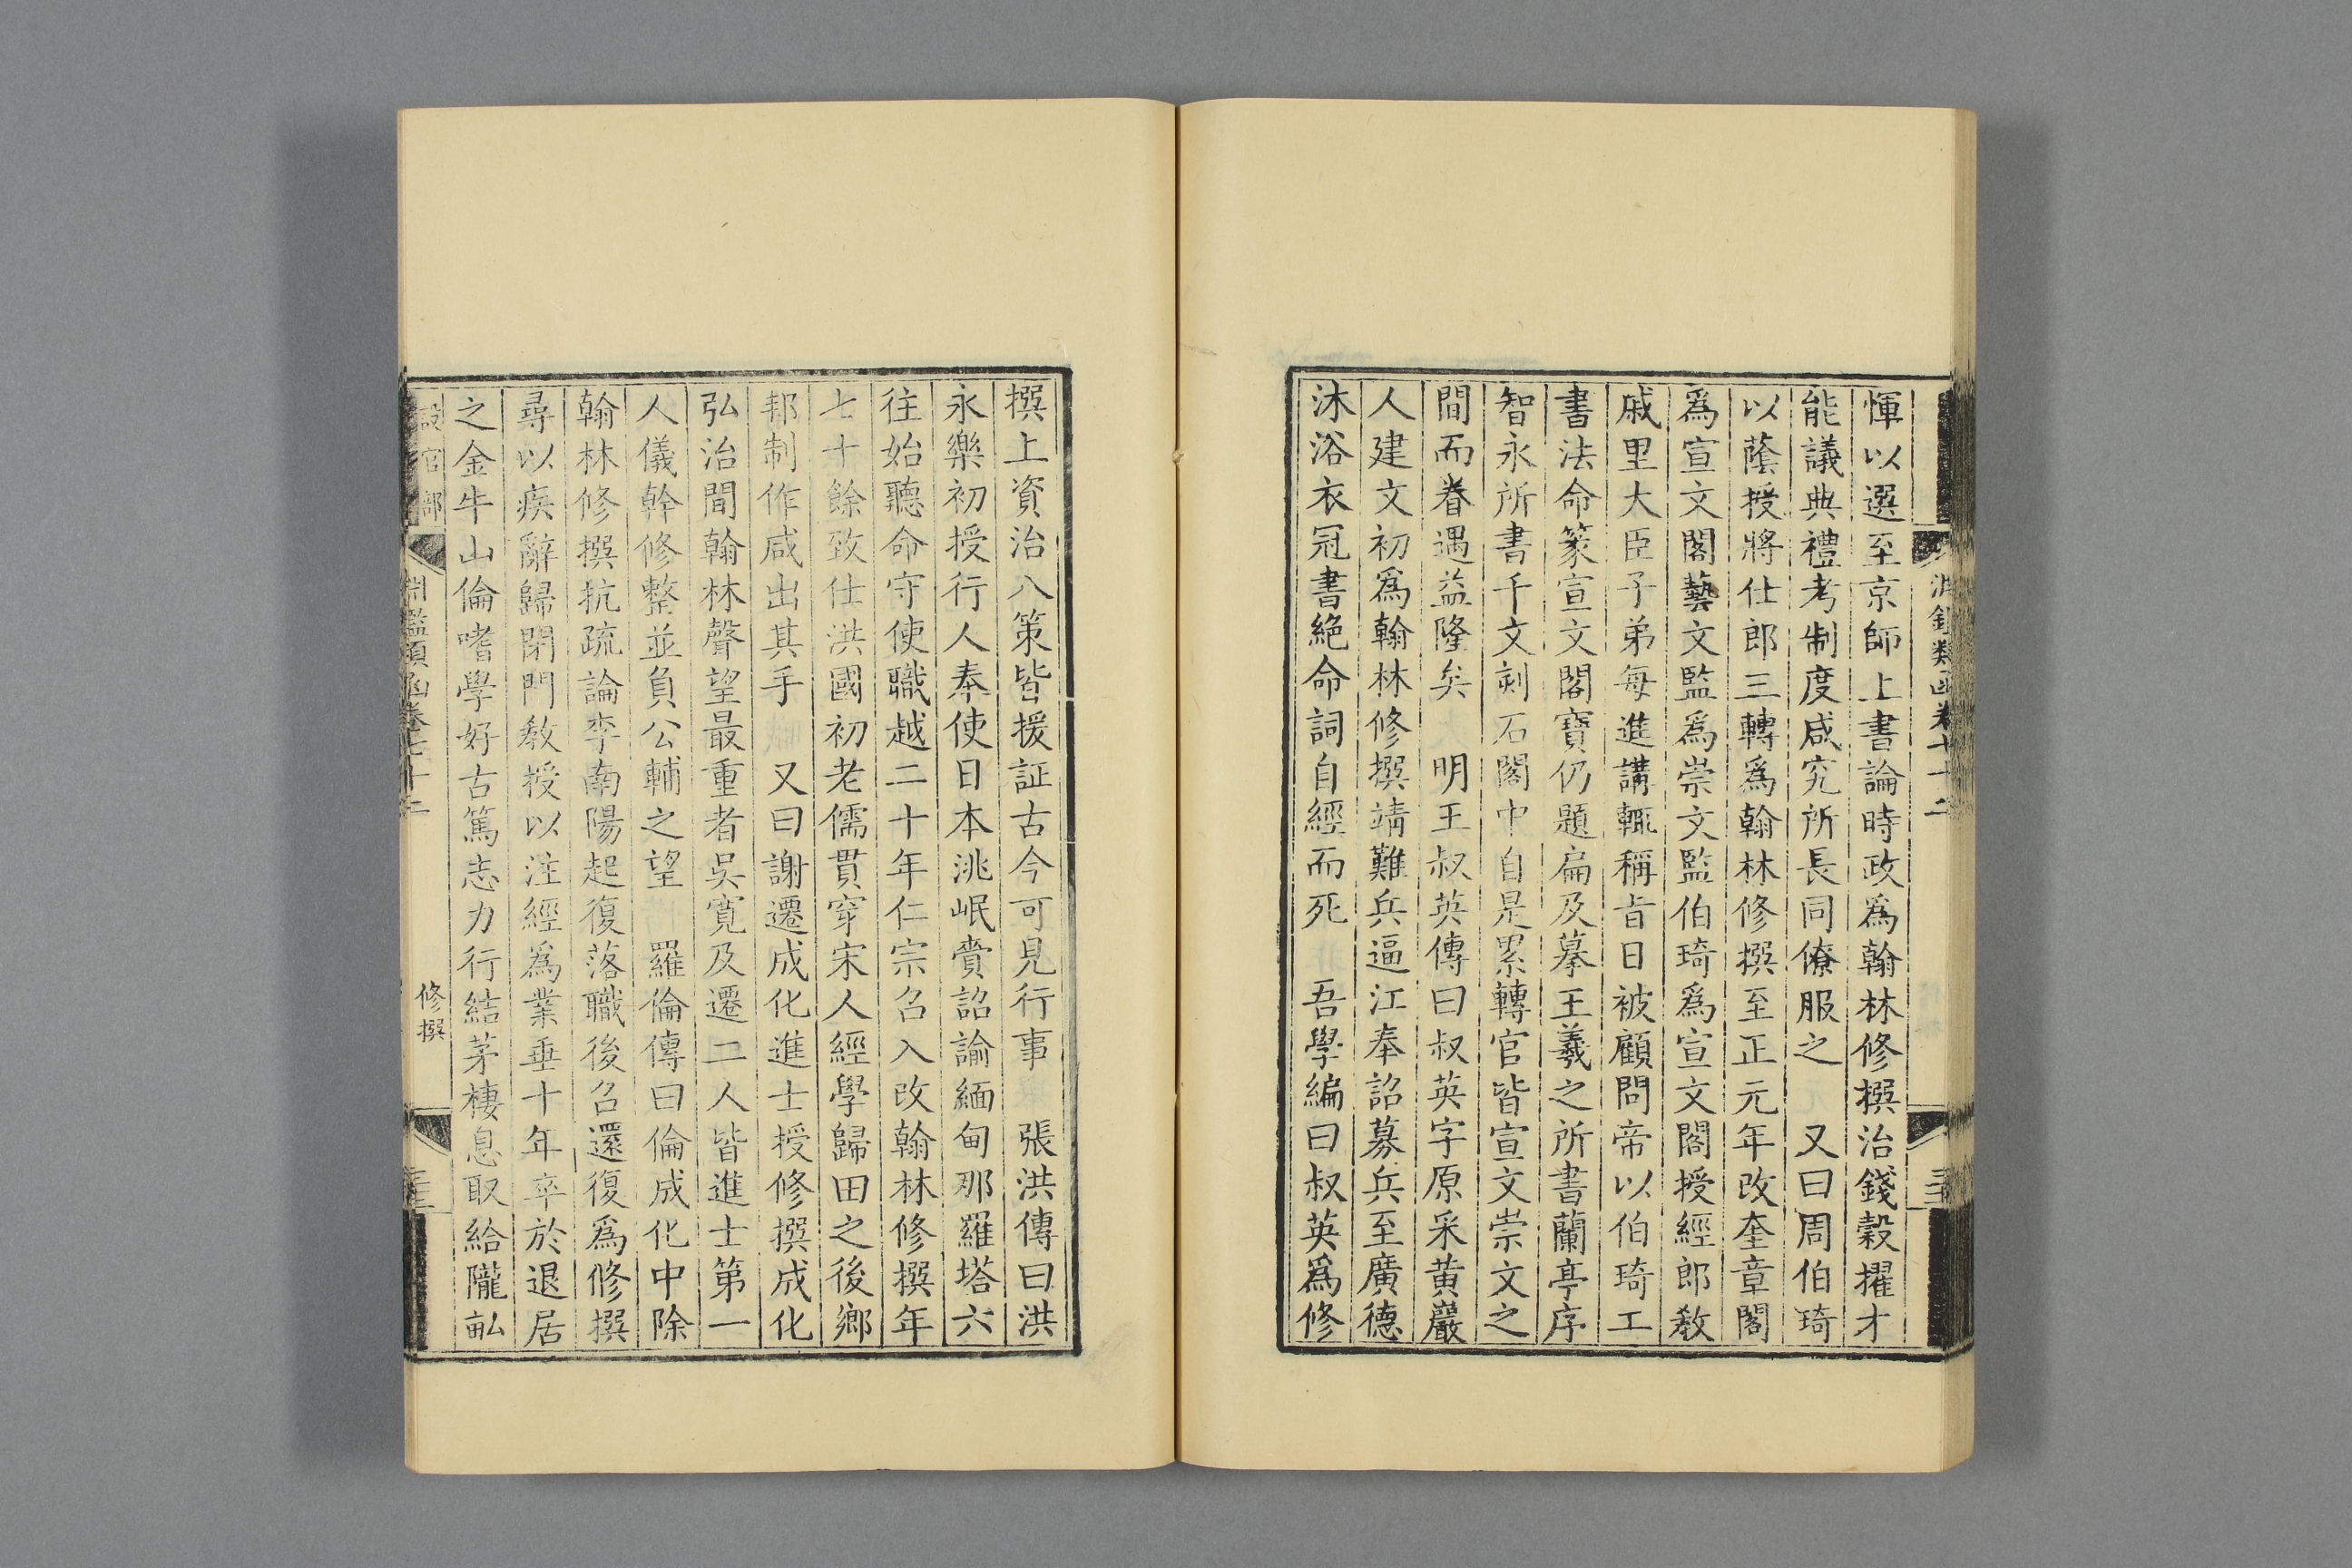 惲以選至京師上書論時政爲翰林修撰治錢穀擢才
能議典禮考制度咸究所長同僚服之　又曰周伯琦
以蔭授將仕郎三轉爲翰林修撰至正元年改奎章閣
爲宣文閣藝文監爲崇文監伯琦爲宣文閣授經郎敎
戚里大臣子弟每進講輒稱旨日被顧問帝以伯琦工
書法命篆宣文閣寶仍題扁及摹王羲之所書蘭亭序
智永所書千文刻石閣中自是累轉官皆宣文崇文之
間而眷遇益隆矣　明王叔英傳曰叔英字原采黃巖
人建文初爲翰林修撰靖難兵逼江奉詔募兵至廣德
沐浴衣冠書絕命詞自經而死　吾學編曰叔英爲修
撰上資治八策皆援証古今可見行事　張洪傳曰洪
永樂初授行人奉使日本洮岷賫詔諭緬甸那羅塔六
往始聽命守使職越二十年仁宗召入改翰林修撰年
七十餘致仕洪國初老儒貫穿宋人經學歸田之後鄉
邦制作咸出其手　又曰謝遷成化進士授修撰成化
弘治間翰林聲望最重者吳寬及遷二人皆進士第一
人儀幹修整並負公輔之望　羅倫傳曰倫成化中除
翰林修撰抗疏論李南陽起復落職後召還復爲修撰
尋以疾辭歸閉門敎授以注經爲業垂十年卒於退居
之金牛山倫嗜學好古篤志力行結茅棲息取給隴畝
設官部
淵鑑類函卷七十二
修撰